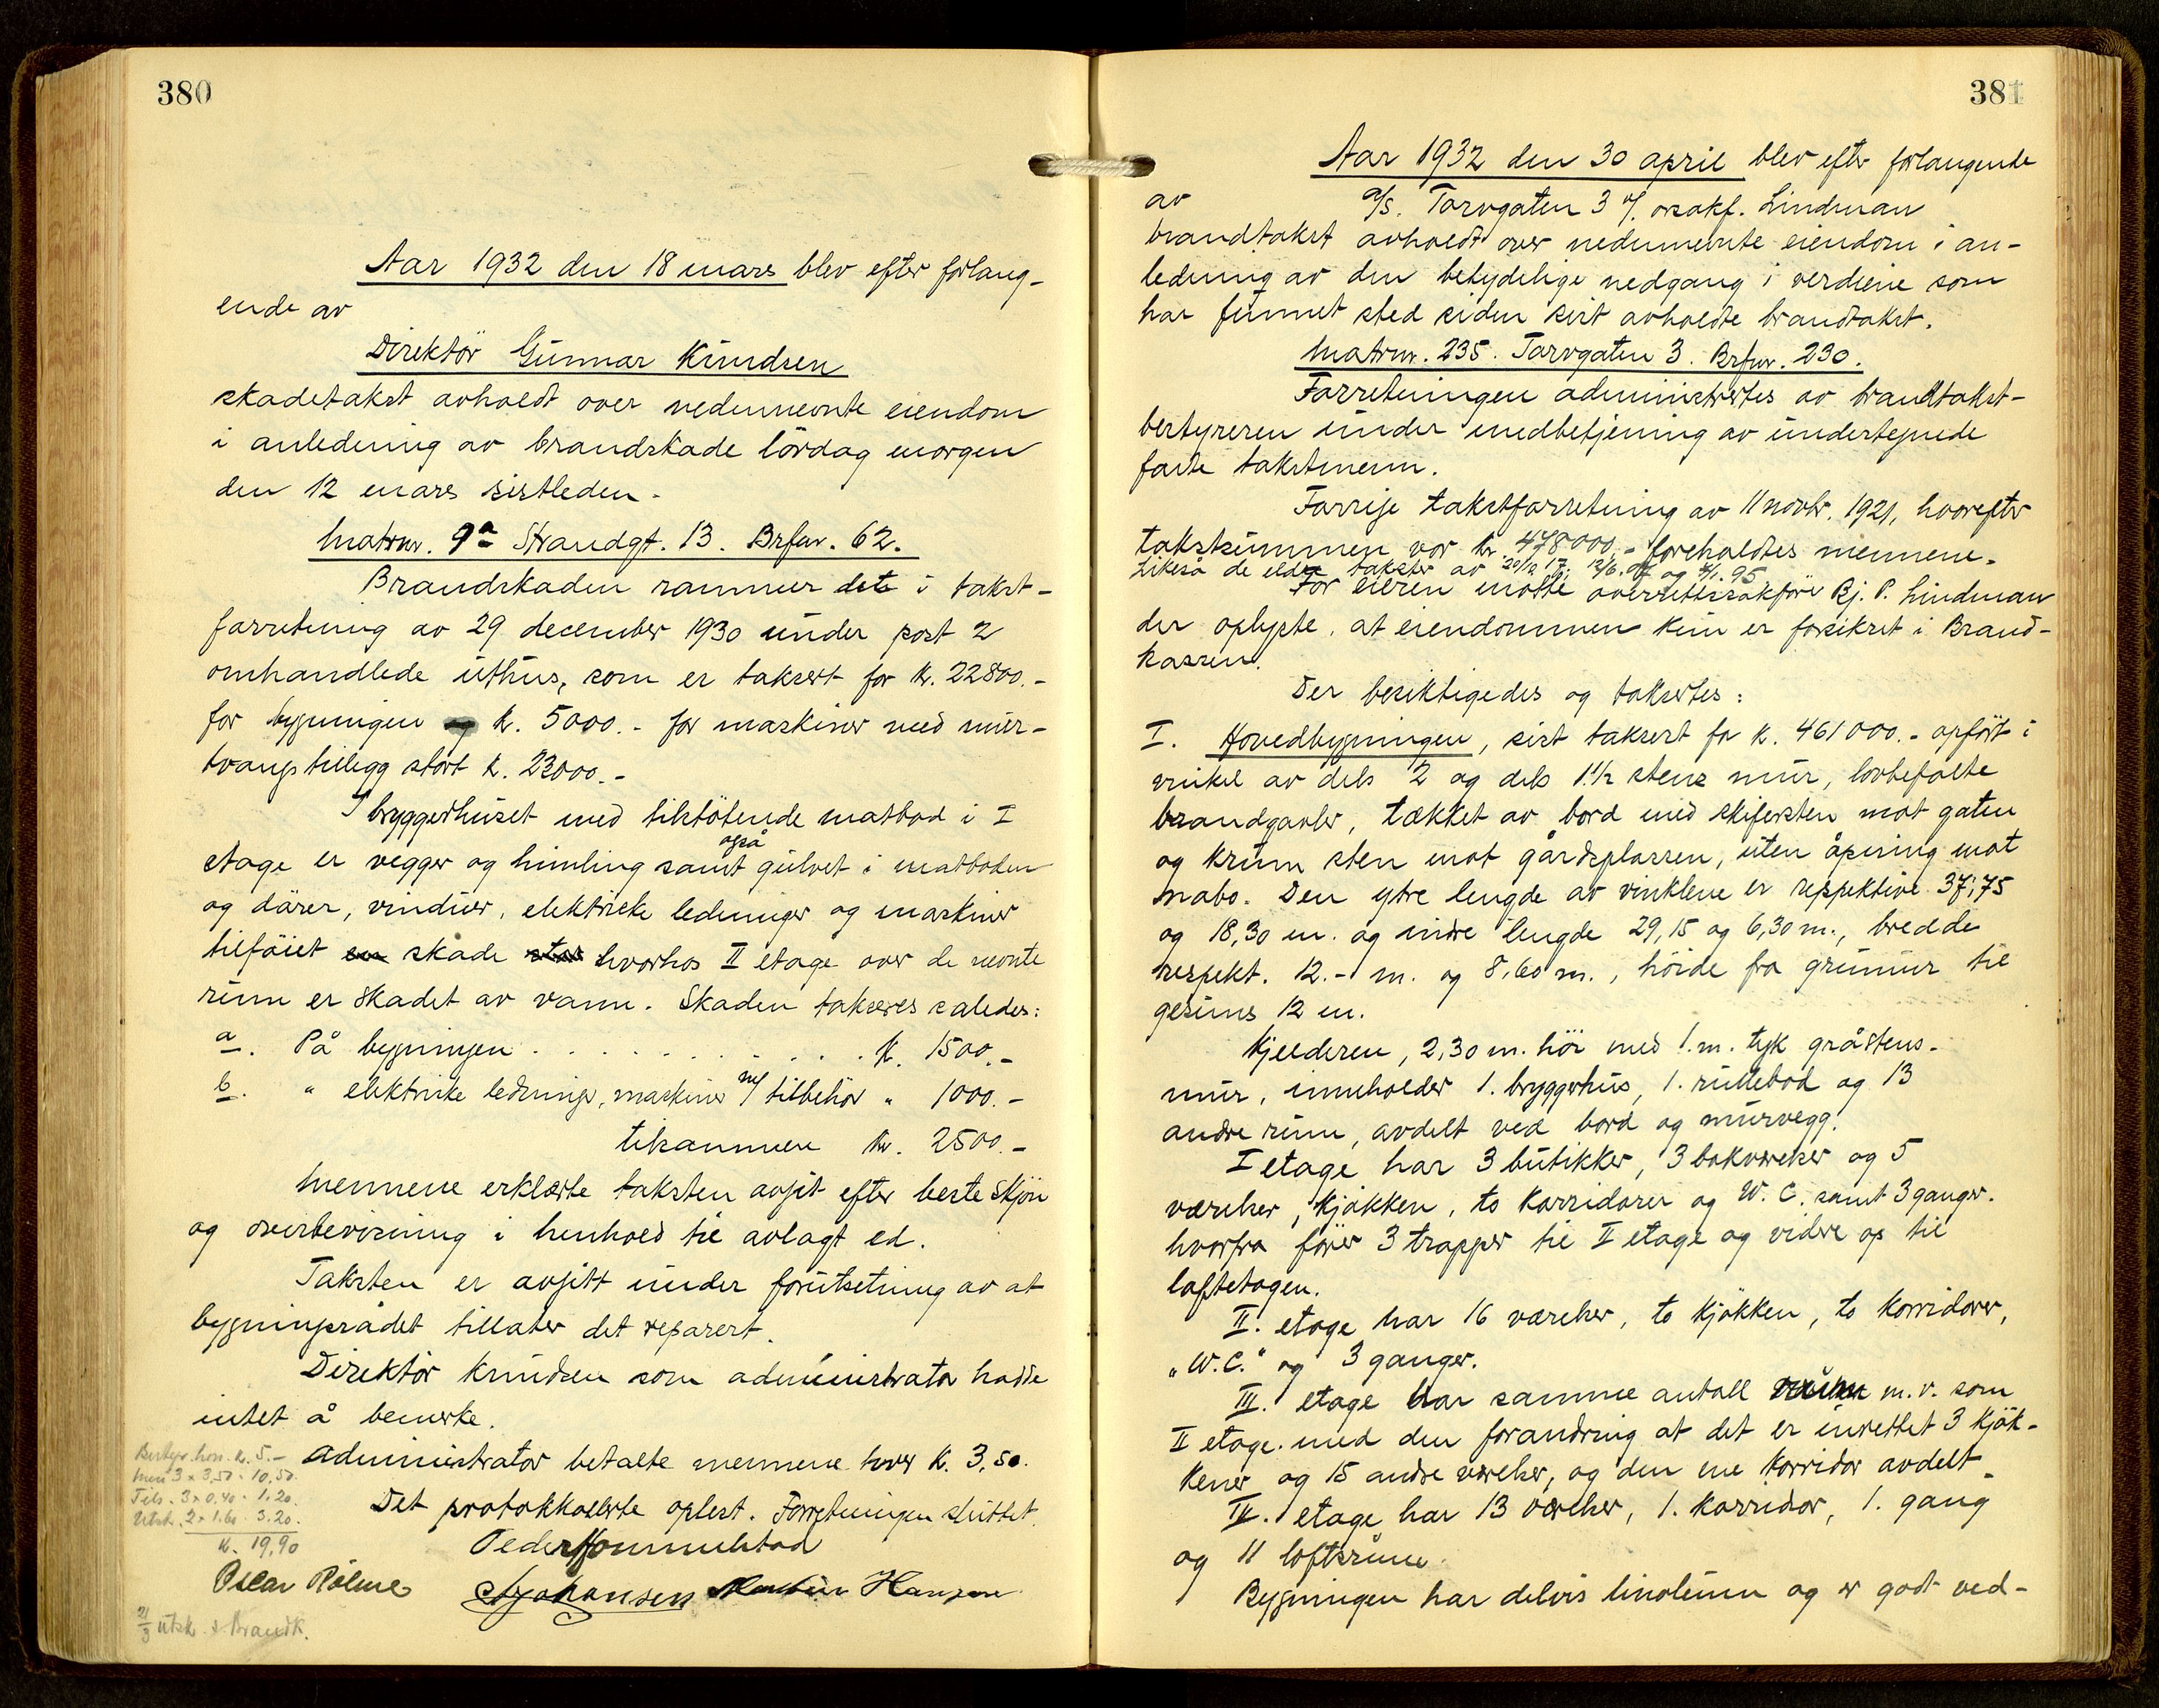 380
Aar 1932 den 18 mars blev efter forlang-
ende av
Direktör Gunnar Knudsen
skadetakst avholdt over nedennevnte eiendom
i anledning av brandskade lördag morgen
den 12 mars sistleden.
Matrnr. 9a Strandgt. 13. Brfnr. 62.
Brandskaden rammer det i takst-
forretning av 29 december 1930 under post 2
omhandlede uthus, som er taksert for kr. 22800.-
for bygningen og kr. 5000.- for maskiner med mur-
tvangstillegg stort k. 23000.-
I bryggerhuset med tilstötende matbod i I
etage er vegger og himling samt også gulvet i matboden
og dörer, vinduer, elektriske ledninger og maskiner
tilföiet en skade stor hvorhos II etage over de nevnte
rum er skadet av vann. Skaden takseres således:
a. På bygningen . . . . . . . . . . . . k. 1500.-
b. " elektriske ledninger, maskiner m/ tilbehör " 1000.-
tilsammen kr. 2500.-
Mennene erklærte taksten avgit efter beste skjön
og overbevisning i henhold til avlagt ed.
Taksten er avgitt under forutsetning av at
bygningsrådet tillater det reparert.
Direktör Knudsen som administrator hadde
intet å bemerke.
Administrator betalte mennene hver k. 3,50.
Bestyr. hon. k. 5.-
Men 3 x 3,50 · 10,50.
Tils. 3 x 0.40 · 1.20.
Utsk. 2 x 1.60 · 3.20.
k. 19,90
Det protokkollerte oplest. Forretningen sluttet.
Peder Hommelstad
Oscar Rolme
A Johansen Martin Hansen
21/3 utsk. t. Brandk.
381
Aar 1932 den 30 april blev efter forlangende
av a/s. Torvgaten 3 v/. orsakf. Lindman
brandtakst avholdt over nedennevnte eiendom i an-
ledning av den betydelige nedgang i verdiene som
har funnet sted siden sist avholdte brandtakst.
Matrnr. 235. Torvgaten 3. Brfnr. 230.
Forretningen administrertes av brandtakst-
bestyreren under medbetjening av undertegnede
faste takstmenn.
Forrige takstforretning av 11 novbr. 1921, hvorefter
takstsummen var kr. 478000.- foreholdtes mennene.
Likeså de eldre takster av 20/10 17; 12/6. 07 og 4/1. 95.
For eieren mötte overrettssakförer Bj. P. Lindman
der oplyste, at eiendommen kun er forsikret i Brand-
kassen.
Der besiktigedes og taksertes:
I. Hovedbygningen, sist taksert for k. 461000.- opfört i
vinkel av dels 2 og dels 1 1/2 stens mur, lovbefalte
brandgavler, tækket av bord med skifersten mot gaten
og krum sten mot gårdsplassen, uten åpning mot
nabo. Den ytre lengde av vinklene er respektive 37,75
og 18,30 m. og indre lengde 29,15 og 6,30 m., bredde
respekt. 12.- m. og 8,60 m., höide fra grunmur til
gesims 12 m.
Kjelderen, 2,30 m. höi med 1. m. tyk gråstens-
mur, inneholder 1. bryggerhus, 1. rullebod og 13
andre rum, avdelt ved bord og murvegg.
I etage har 3 butikker, 3 bakværelser og 5
værelser, kjökken, to korridorer og W. C. samt 3 ganger.
hvorfra förer 3 trapper til II etage og videre op til
loftetagen.
II. etage har 16 værelser, to kjökken, to korridorer,
"W.C." og 3 ganger.
III. etage har samme antall m.v. som
II etage. med den forandring at det er innrettet 3 kjök-
kener og 15 andre værelser, og den ene korridor avdelt.
IV. etage har 13 værelser, 1. korridor, 1. gang
og 11 loftsrum.
Bygningen har delvis linoleum og er godt ved-